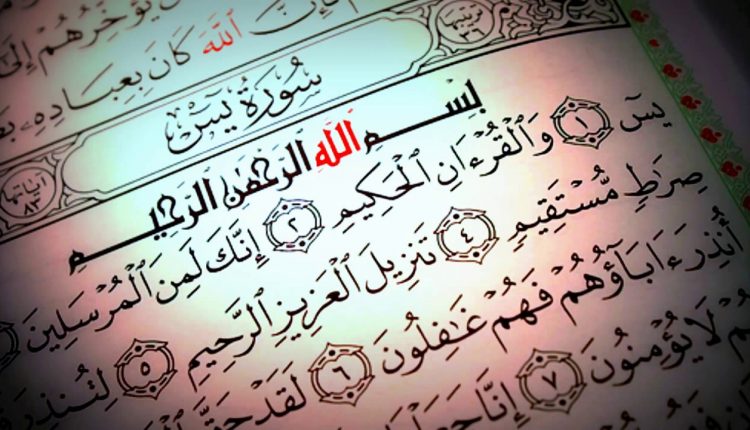 يُؤَخِّرُهُمْ إِلَىٰ
فَإِنَّ ٱللَّهَ كَانَ بِعِبَادِهِۦ
ترتيبها ٣٦ سُورَةُ يسٓ آياتها ٨٣
بِسْمِ ٱللَّهِ ٱلرَّحْمَٰنِ ٱلرَّحِيمِ
يسٓ ١ وَٱلْقُرْءَانِ ٱلْحَكِيمِ ٢ إِنَّكَ لَمِنَ ٱلْمُرْسَلِينَ
صِرَٰطٍ مُّسْتَقِيمٍ ٤ تَنزِيلَ ٱلْعَزِيزِ ٱلرَّحِيمِ ٥ لِتُنذِرَ
أُنذِرَ ءَابَآؤُهُمْ فَهُمْ غَٰفِلُونَ ٦ لَقَدْ حَقَّ
لَا يُؤْمِنُونَ ٧ إِنَّا